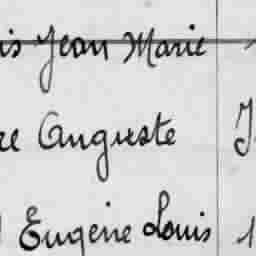 is Jean Marie
re Auguste
Eugène Louis